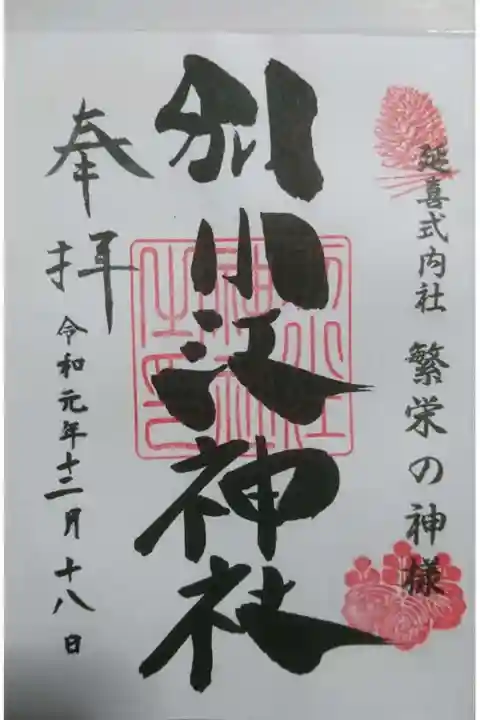 延喜式内社 繁栄の神様
別小江神社
奉拝
令和元年十二月十八日